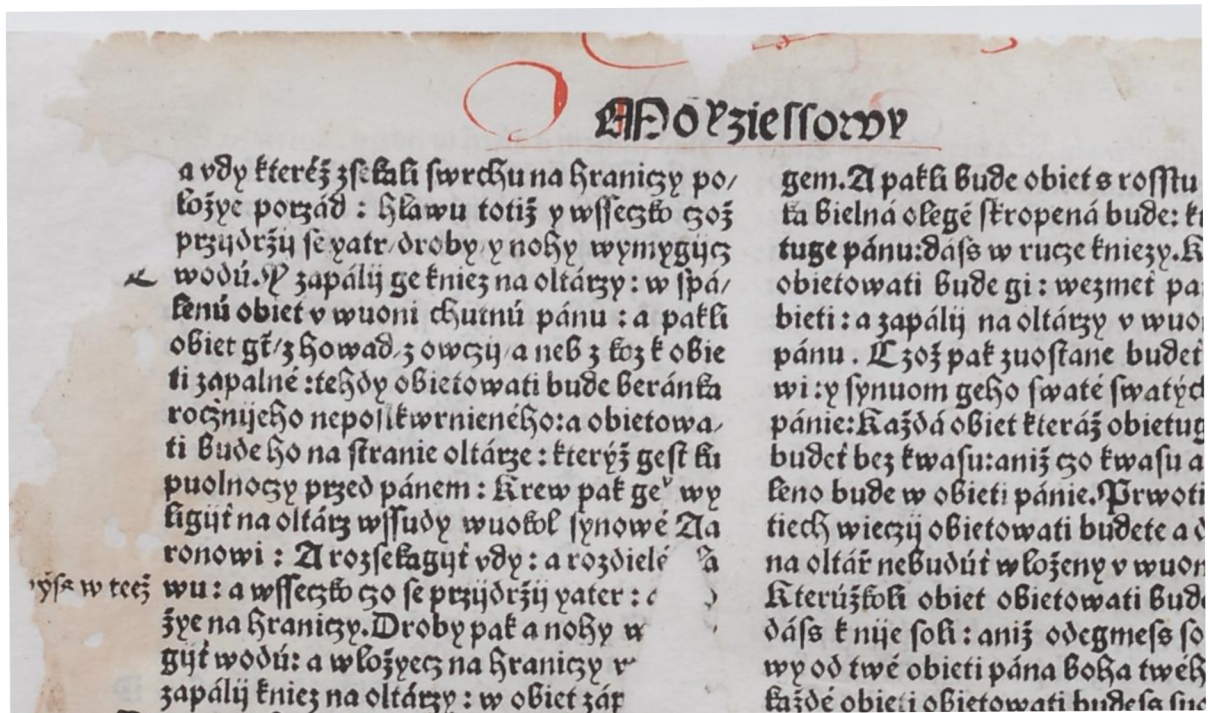 Moyziessowy
a vdy kteréž zsekali swrchu na hraniczy po/
ložye porzád : hlawu totiž y wsseczko czož
przijdržij se yatr/droby y nohy wymygijcz
wodú. Y zapálij ge kniez na oltárzy : w spá/
lenú obiet v wuoni chutnú pánu : a pakli
obiet gt̃/z howad/z owczij/a neb z koz k obie
ti zapalné : tehdy obietowati bude beránka
rocžnijeho neposskwrnieného : a obietowa/
ti bude ho na stranie oltárze : kterýž gest ku
puolnoczy przed pánem : Krew pak ge wy
ligijt na oltárz wssudy wuokol synowé Aa
ronowi : A rozsekagijt vdy : a rozdielé
w teež
wu : a wsseczko czo se przijdržij yater :
žye na hraniczy. Droby pak a nohy
gijt wodú : a wložyecz na hraniczy
zapálij kniez na oltárzy : w obiet záp
gem. A pakli bude obiet s rosstu
ta bielná olegé skropená bude :
tuge pánu : dáss w rucze kniezy. K
obietowati bude gi : wezmet pa
bieti : a zapálij na oltárzy v wuo
pánu . Czož pak zuostane budet
wi : y synuom geho swaté swatých
pánie : Každá obiet kteráž obietug
budet bez kwasu : aniž czo kwasu a
leno bude w obieti pánie. Prwoti
tiech wieczij obietowati budete a d
na oltář nebudút wloženy v wuon
Kterúžkoli obiet obietowati bude
dáss k nije soli : aniž odegmess so
wy od twé obieti pána boha twéh
každé obieti obietowati budess